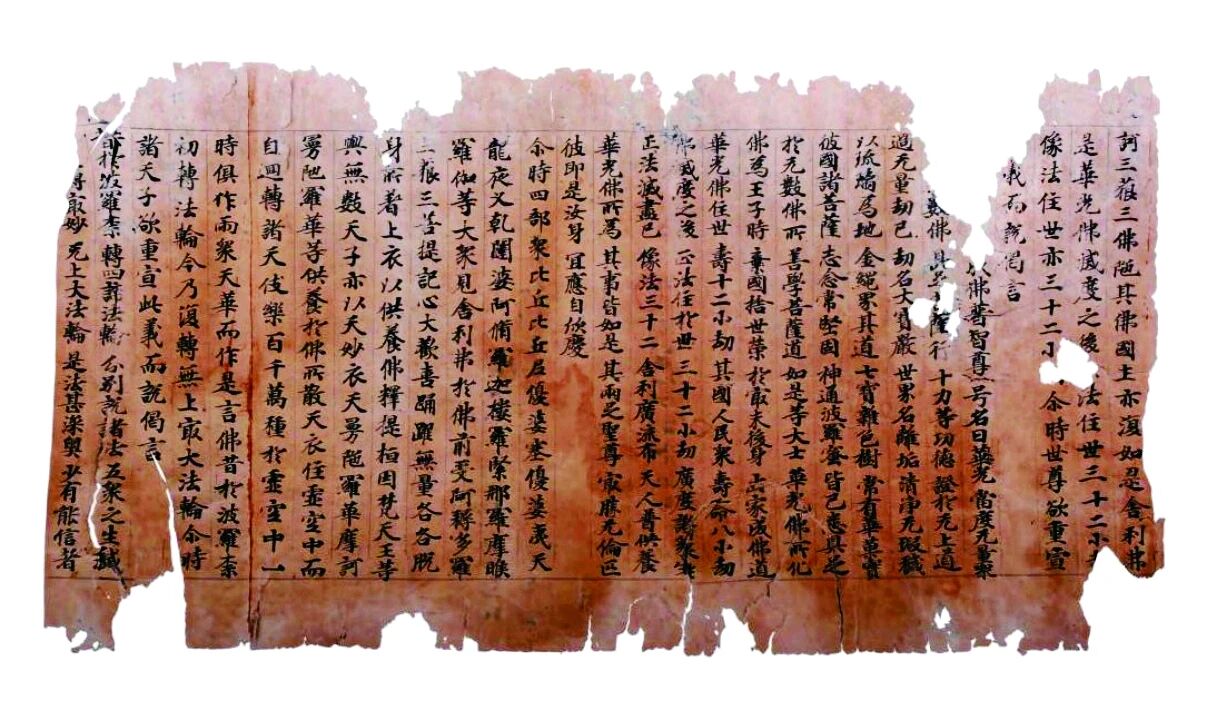 訶三藐三佛陁其佛國土亦復如是舍利弗
是華光佛滅度之後法住世三十二小
像法住世亦三十二小尒時世尊欲重宣
義而說偈言
佛普智尊号名曰華光當度无量衆
數佛具菩薩行 十力等功德證於无上道
過无量劫已 劫名大寶嚴 世界名離垢清淨无瑕穢
以琉璃為地 金繩界其道 七寶雜色樹 常有華菓實
彼國諸菩薩 志念常堅固 神通波羅蜜 皆已悉具足
於无數佛所 善學菩薩道 如是等大士 華光佛所化
佛為王子時 棄國捨世榮 於冣末後身 出家成佛道
華光佛住世 壽十二小劫 其國人民衆 壽命八小劫
佛滅度之後 正法住於世 三十二小劫 廣度諸衆生
正法滅盡已 像法三十二 舍利廣流布 天人普供養
華光佛所為 其事皆如是 其兩足聖尊 冣勝无倫匹
彼即是汝身 宜應自欣慶
尒時四部衆比丘比丘尼優婆塞優婆夷天
龍夜叉乾闥婆阿脩羅迦樓羅緊那羅摩睺
羅伽等大衆見舍利弗於佛前受阿耨多羅
三藐三菩提記心大歡喜踊躍無量各各脫
身所著上衣以供養佛釋提桓因梵天王等
與無數天子亦以天妙衣天曼陁羅華摩訶
曼陁羅華等供養於佛所散天衣住虛空中而
自迴轉諸天伎樂百千萬種於虛空中一
時俱作雨衆天華而作是言佛昔於波羅柰
初轉法輪今乃復轉無上冣大法輪尒時
諸天子欲重宣此義而說偈言
昔於波羅柰轉四諦法輪分別說諸法五衆之生滅
冣妙无上大法輪是法甚深奧少有能信者